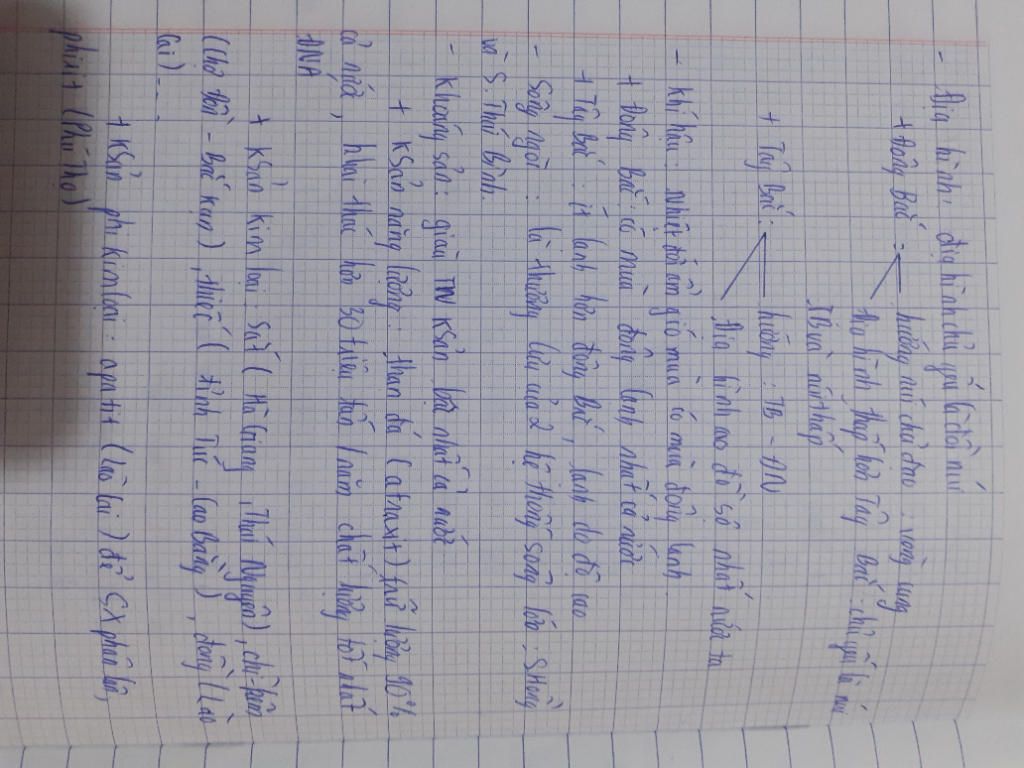 - Địa hình: địa hình chủ yếu là đồi núi
+ Đông Bắc: hướng núi chủ đạo: vòng cung
địa hình thấp hơn Tây Bắc: chủ yếu là núi
TB và núi thấp
+ Tây Bắc: hướng: TB - ĐN
địa hình cao đồ sộ nhất nước ta
- Khí hậu: Nhiệt đới ẩm gió mùa có mùa đông lạnh
+ Đông Bắc có mùa đông lạnh nhất cả nước
+ Tây Bắc: ít lạnh hơn đông Bắc, lạnh do độ cao
- Sông ngòi: là thượng lưu của 2 hệ thống sông lớn: S.Hồng
và S. Thái Bình.
- Khoáng sản: giàu TN Ksản bậc nhất cả nước
+ Ksản năng lượng: than đá (atraxit) trữ lượng 90%
cả nước, khai thác hơn 30 triệu tấn/năm chất lượng tốt nhất
ĐNÁ
+ Ksản kim loại: sắt (Hà Giang, Thái Nguyên), chì-kẽm
(Chợ Đồn - Bắc Kạn), thiếc (Tĩnh Túc - Cao Bằng), đồng (Lào
Cai) ...
+ Ksản phi kim loại: apatit (Lào Cai) để SX phân bón,
pirit (Phú Thọ)